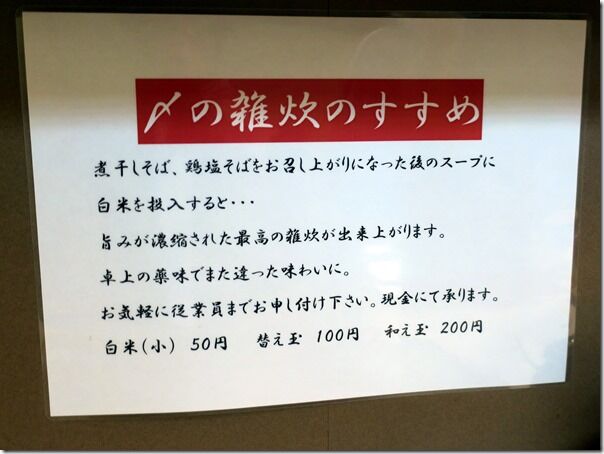 〆の雑炊のすすめ
煮干しそば、鶏塩そばをお召し上がりになった後のスープに
白米を投入すると・・・
旨みが濃縮された最高の雑炊が出来上がります。
卓上の薬味でまた違った味わいに。
お気軽に従業員までお申し付け下さい。現金にて承ります。
白米(小) 50円 替え玉 100円 和え玉 200円